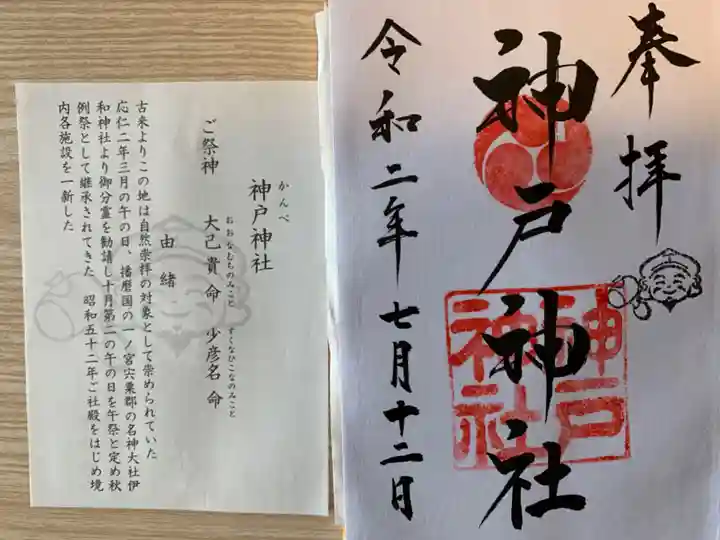 奉拝
神戸神社
神戸
神社
令和二年七月十二日
かんべ
神戸神社
ご祭神
おおなむちのみこと すくなひこなのみこと
大己貴命 少彦名命
由緒
古来よりこの地は自然崇拝の対象として崇められていた
応仁二年三月の午の日、播磨国の一ノ宮宍粟郡の名神大社伊
和神社より御分霊を勧請し十月第二の午の日を午祭と定め秋
例祭として継承されてきた 昭和五十二年ご社殿をはじめ境
内各施設を一新した